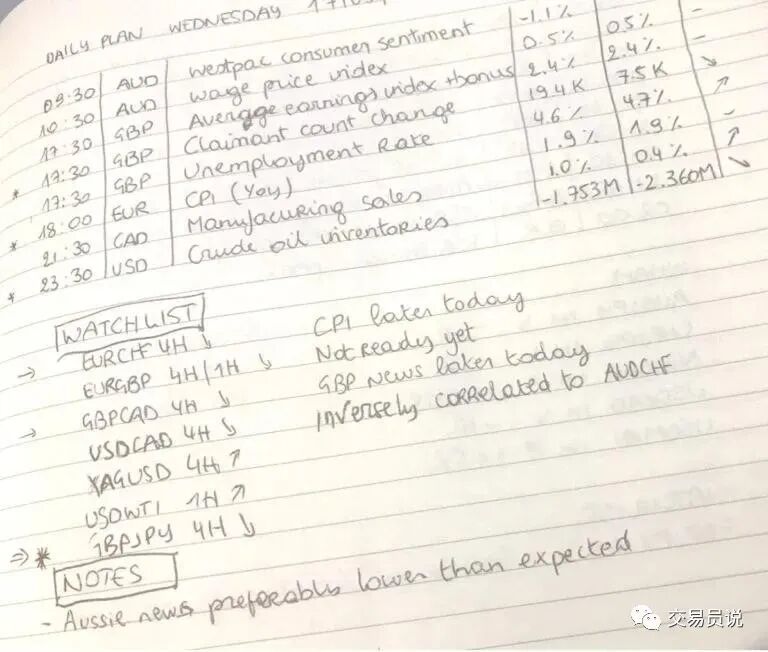 DAILY PLAN WEDNESDAY
09:30 AUD Westpac consumer sentiment -1.1% -
10:30 AUD Wage price index 0.5% 0.5% -
17:30 GBP Average earnings index +bonus 2.4% 2.4% -
* 17:30 GBP Claimant count change 19.4K 7.5K ↘
17:30 GBP Unemployment Rate 4.6% 4.7% ↗
* 18:00 EUR CPI (YoY) 1.9% 1.9% -
21:30 CAD Manufacuring sales 1.0% 0.4% ↗
* 23:30 USD Crude oil inventories -1.753M -2.360M ↘
WATCHLIST
→ EURCHF 4H ↘ CPI later today
EURGBP 4H/1H ↘ Not Ready yet
→ GBPCAD 4H ↘ GBP News later today
USDCAD 4H ↘ INVERSELY CORRELATED to AUDCHF
XAGUSD 4H ↗
USDWTI 1H ↗
⇒ * GBPJPY 4H ↘
NOTES
- Aussie news preferably lower than expected
交易员说